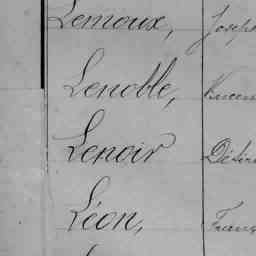 Lemoux, Joseph
Lenoble,
Lenoir Désiré
Léon, Franç